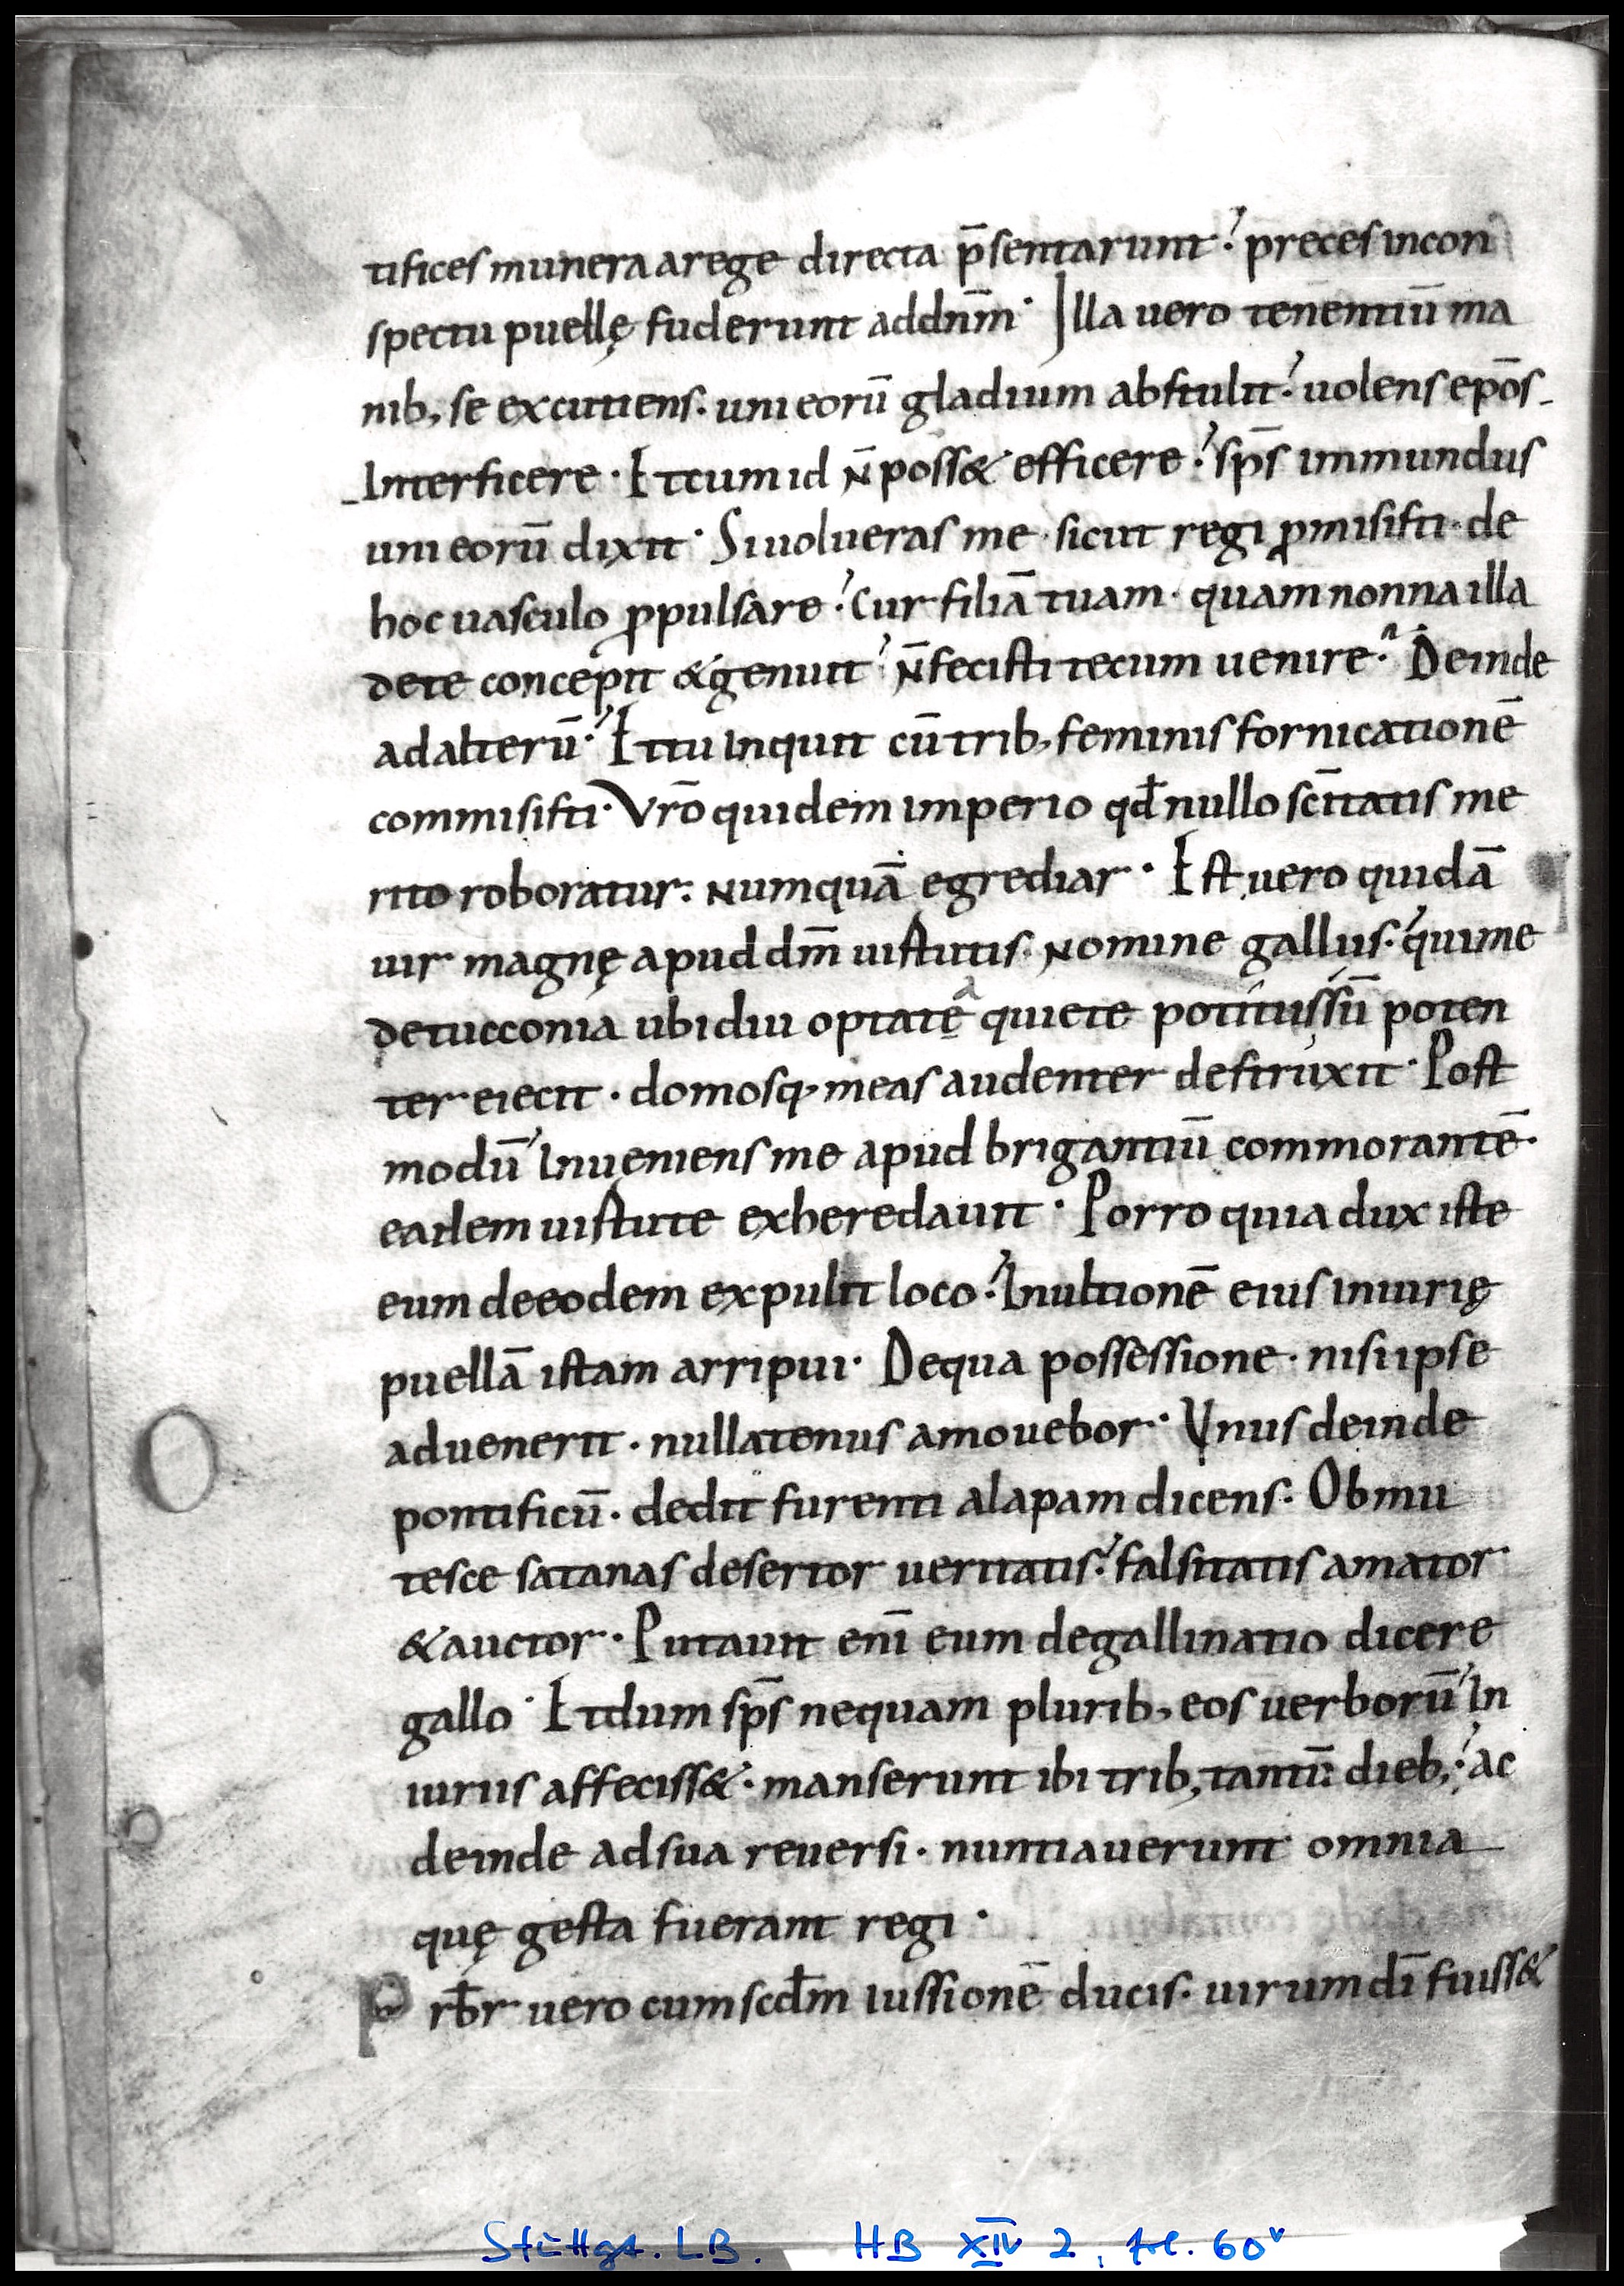 tifices munera a rege directa p̄sentarunt. preces in con
spectu puellę fuderunt ad dn̄m. Illa uero tenentiū ma
nib; se excutiens. uni eorū gladium abstulit. uolens ep̄os
Interficere. Et cum id n̄ poss& efficere. sp̄s immundus
uni eorū dixit. Si uolueras me. sicut regi ꝓmisisti. de
hoc uasculo ꝓpulsare. Cur filiā tuam. quam nonna illa
de te concepit & genuit n̄ fecisti tecum uenire. Deinde
ad alterū. Et tu Inquit cū trib; feminis fornicationē
commisisti. Vr̄o quidem imperio qđ nullo sc̄itatis me
rito roboratur. numquā egrediar. Est uero quidā
uir magnę apud dm̄ uirtutis. nomine gallus. qui me
de tucconia ubi diu optatę quiete potitus sū poten
ter eiecit. domosq; meas audenter destruxit. Post
modū Inueniens me apud brigantiū commorantē.
eadem uirtute exheredauit. Porro quia dux iste
eum de eodem expulit loco. In ultionē eius iniurię
puellā istam arripui. De qua possessione. nisi ipse
aduenerit. nullatenus amouebor. Vnus deinde
pontificū. dedit furenti alapam dicens. Obmu
tesce satanas desertor ueritatis. falsitatis amator
& auctor. Putauit eni̅ eum de gallinatio dicere
gallo. Et dum sp̄s nequam plurib; eos uerborū In
iuriis affeciss&. manserunt ibi trib; tantū dieb;. ac
deinde ad sua reuersi. nuntiauerunt omnia
quę gesta fuerant regi.
P rb̄r uero cum scđm iussionē ducis. uirum dī fuiss&
Stuttgt. LB. HB XIV 2, fol. 60v